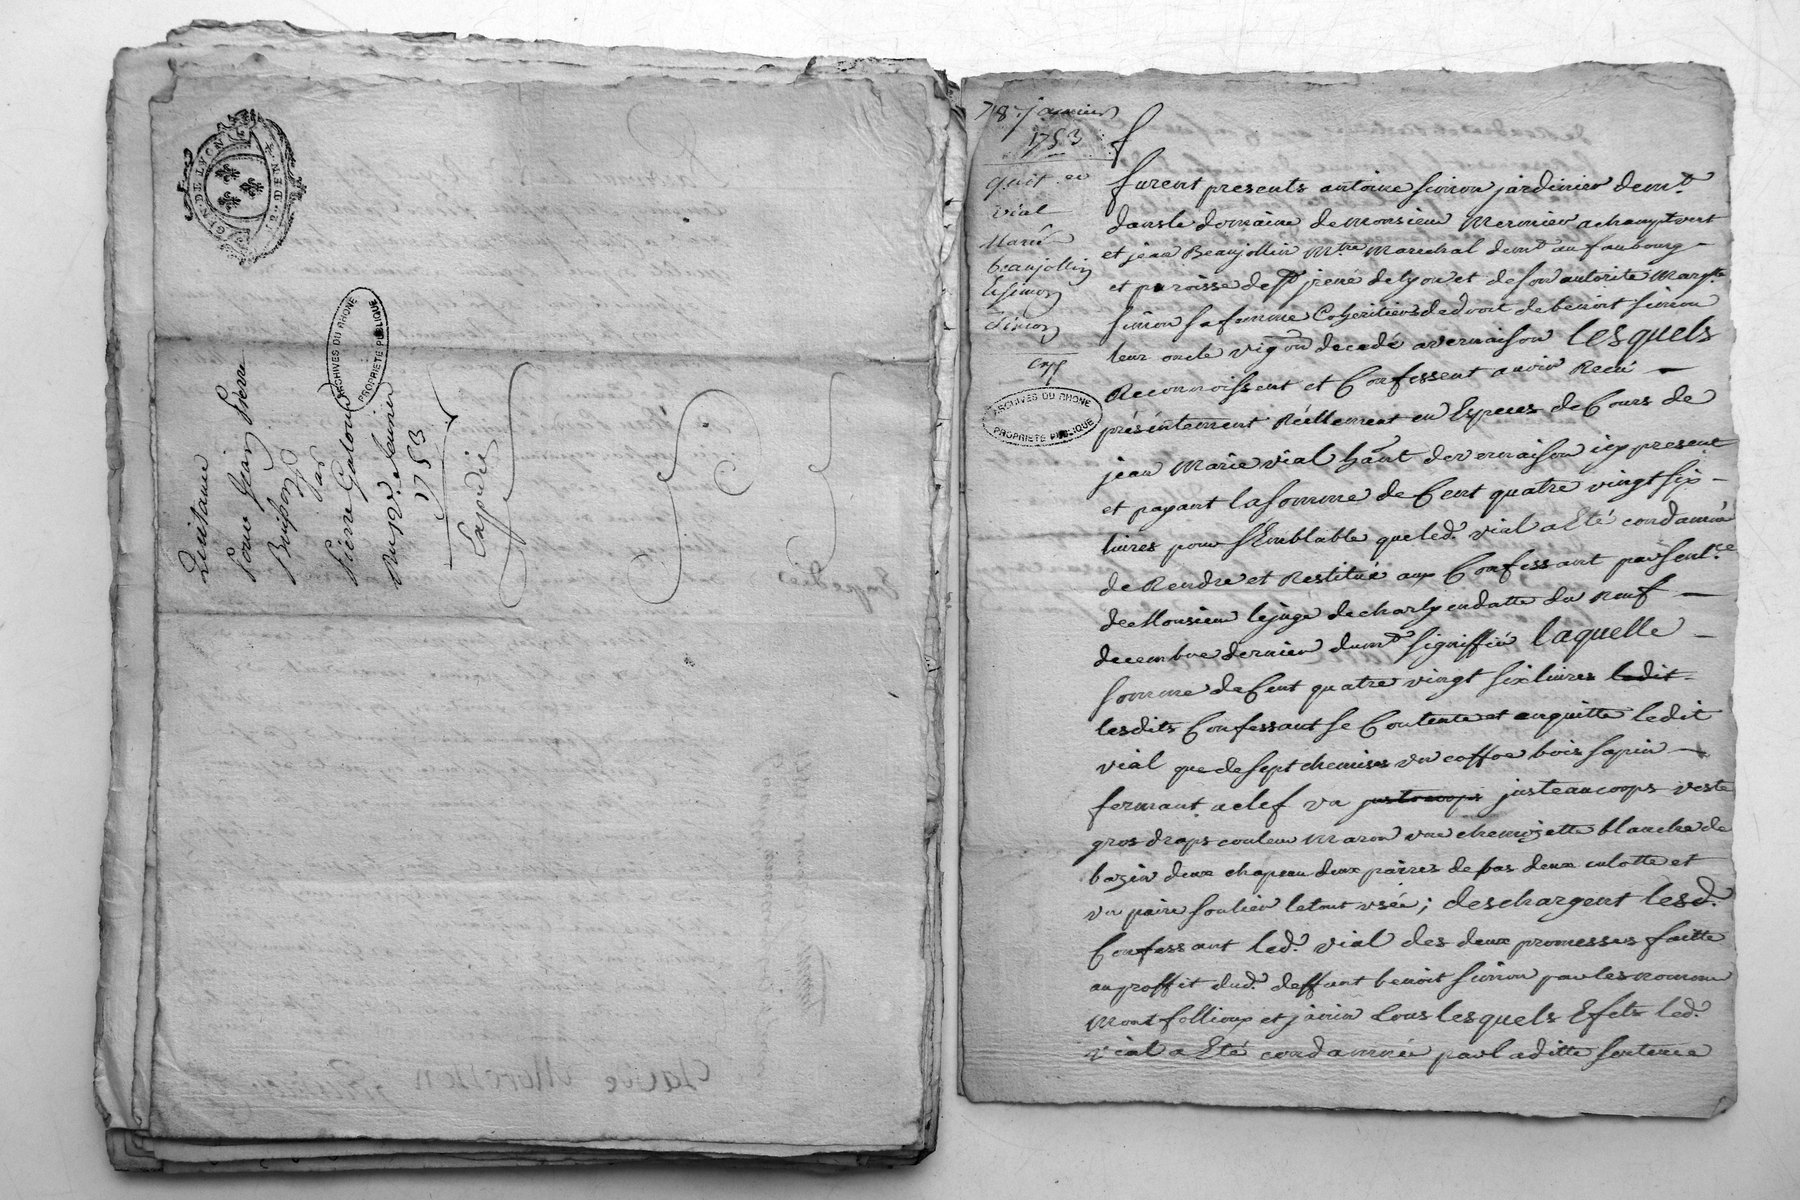 GEN. DE LYON
ARCHIVES DU RHONE
PROPRIETE PUBLIQUE
quittance
pour Jean Pierre
Buisson
par
Pierre
du 12e Janvier
1753
Expedié
Expedié
janvier
1753
quit.ce
vial
Marie
beaujollin
& simon
simon
exp
ARCHIVES DU RHONE
PROPRIETE PUBLIQUE
furent presents antoine simon jardinier demt
dans le domaine de Monsieur Mermier a champt vert
et jean Beaujollin Mtre Marechal demt au faubourg
et paroisse de st jrené de lyon et de son autorite Margte
simon sa femme Coheritiers de droit de benoit simon
leur oncle vigon decedé a vernaison lesquels
Reconnoissent et Confessent avoir Receu
présentement Réellement en Especes de Cours de
jean Marie vial hant de vernaison icy present
et payant la somme de Cent quatre vingt six
livres pour semblable que led. vial a Eté condamné
de Rendre et Restitué aux Confessant par sentce
de Monsieur le juge de charly en datte du neuf
decembre dernier dumt signiffiée laquelle
somme de Cent quatre vingt six livres ledit
lesdits Confessant se Contente et en quitte ledit
vial que de sept chemises un coffre bois sapin
fermant a clef un justocorps justeaucorps veste
gros draps couleur Maron une chemisette blanche de
bazin deux chapeau deux paires de bas deux culotte et
un paire soulier le tout usée ; deschargent lesd.
Confessant led. vial des deux promesses faitte
au proffit dud. deffant benoit simon par les nommé
Montfollioux et janin tous lesquels Efets led.
vial a Eté condamnée par laditte sentence